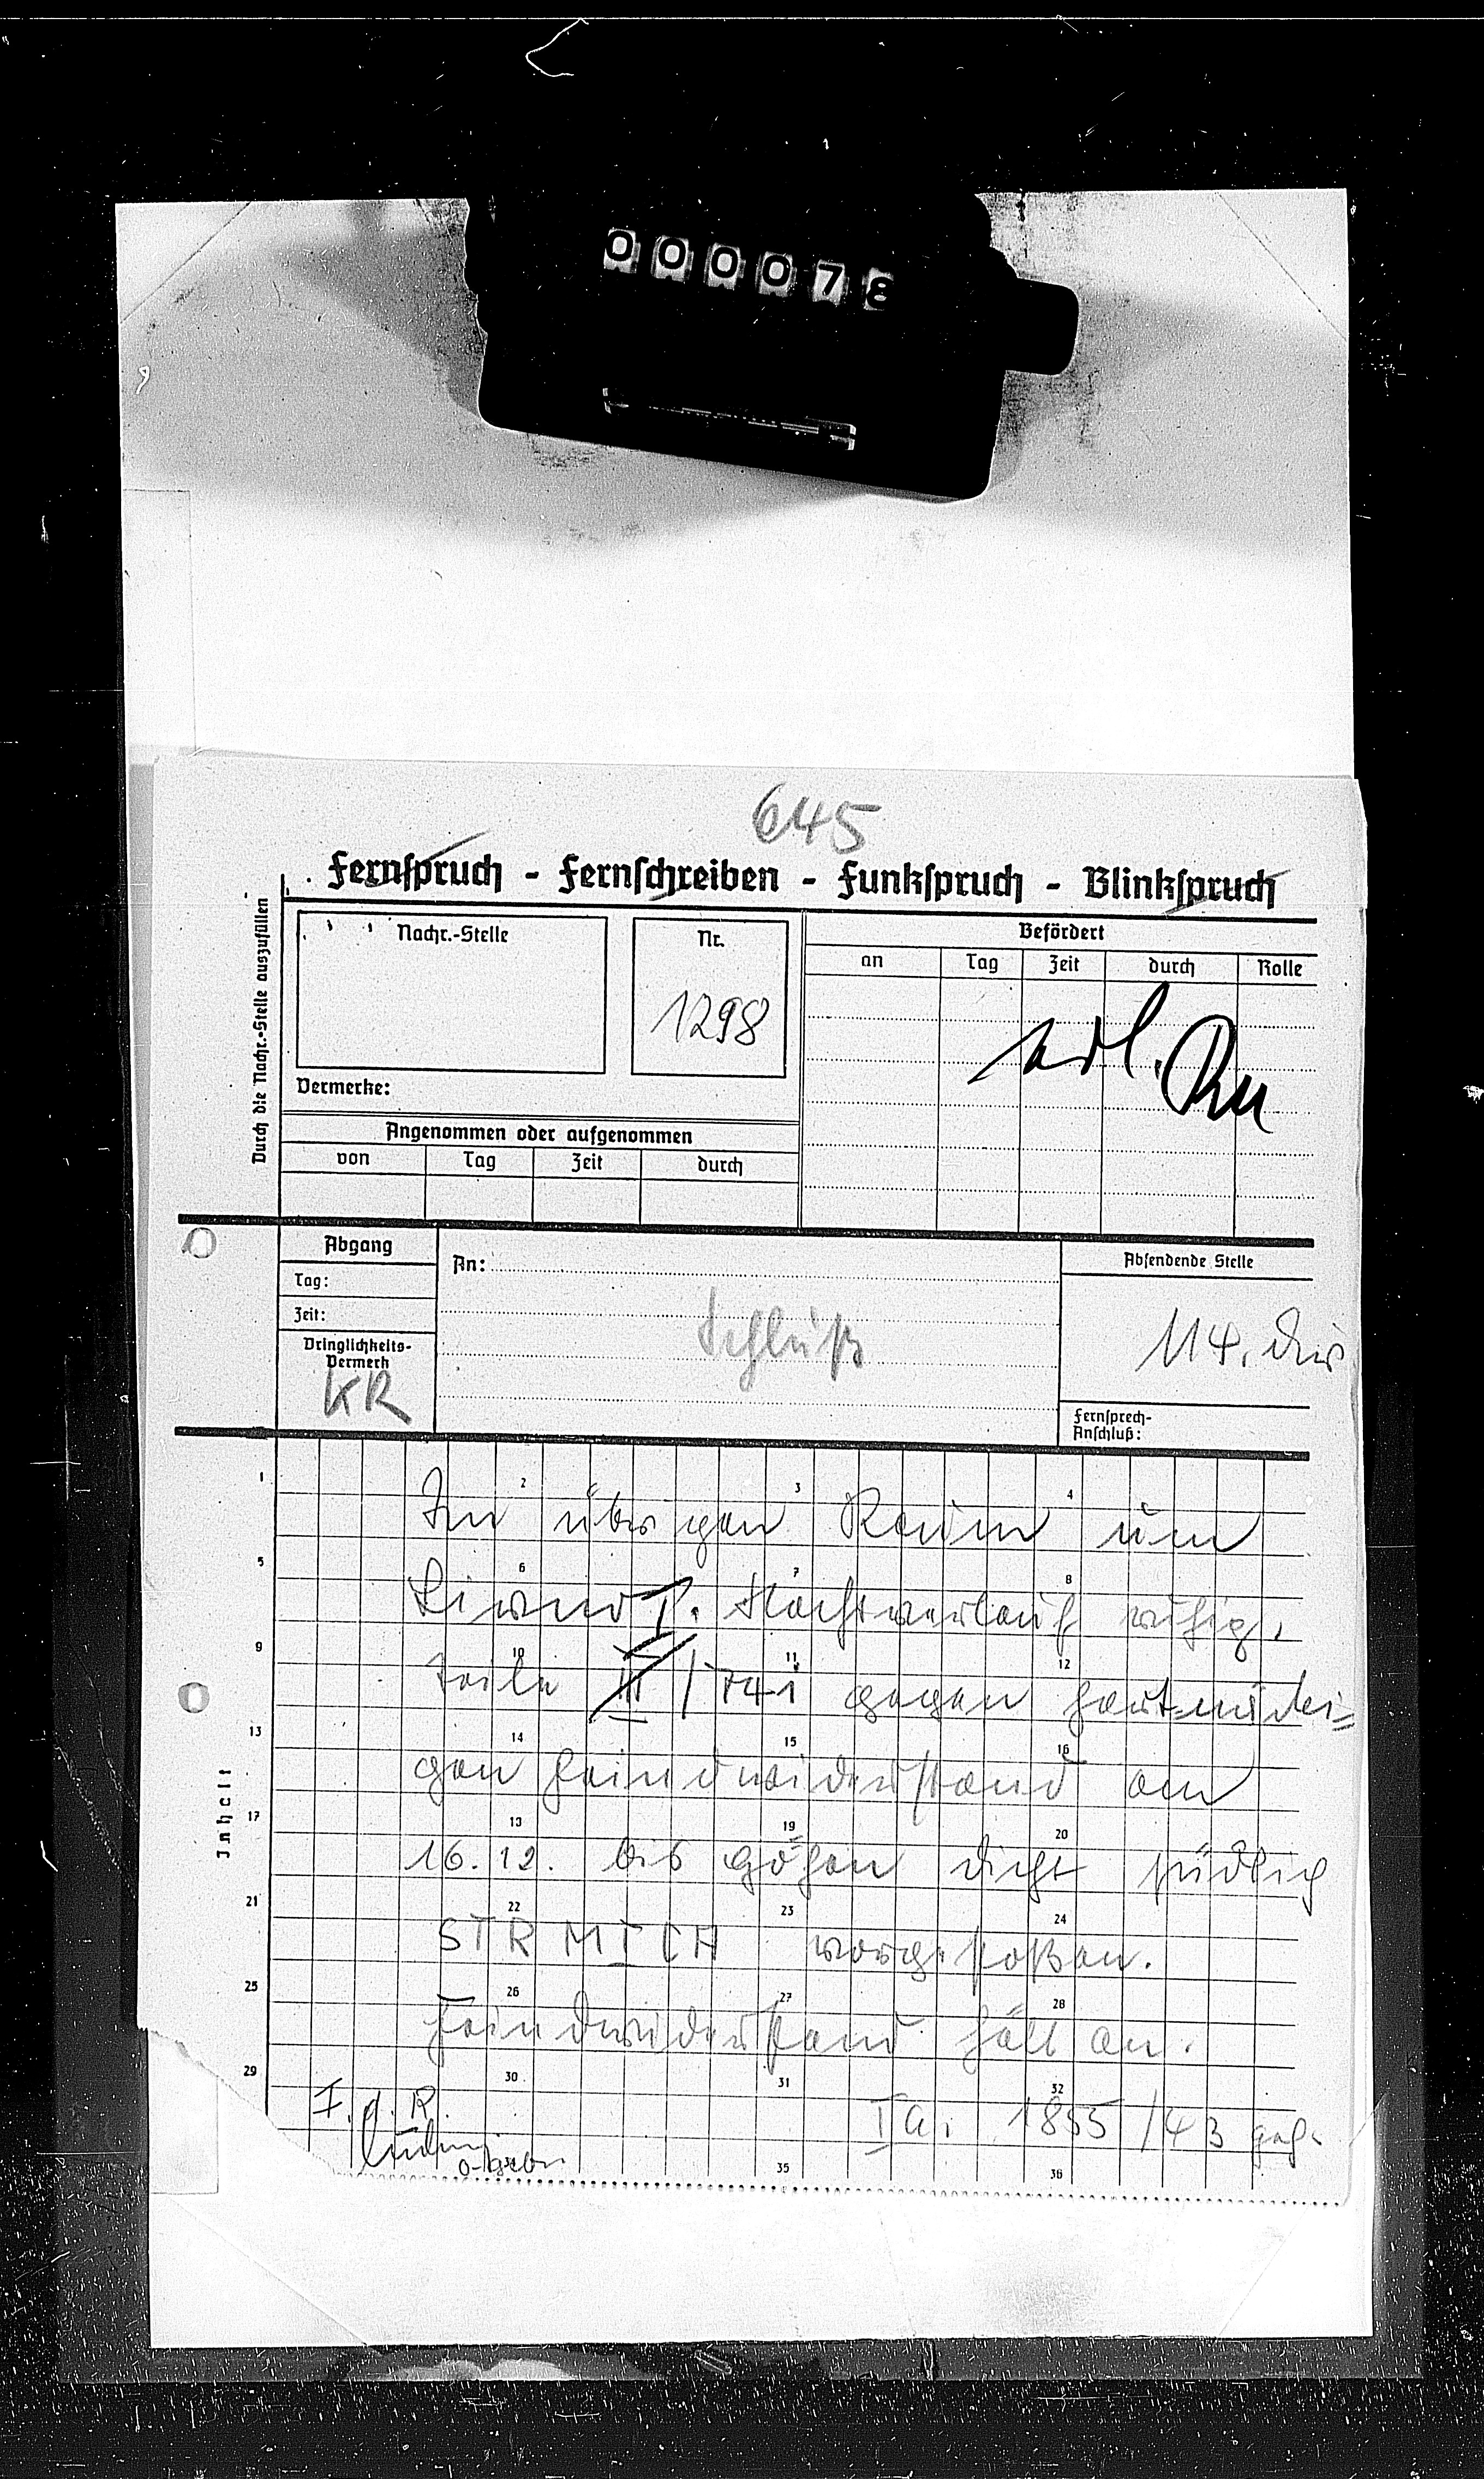 000078
645
Fernspruch - Fernschreiben - Funkspruch - Blinkspruch
Durch die Nachr.-Stelle auszufüllen
Nachr.-Stelle
Nr.
1298
Befördert
an Tag Zeit durch Rolle
Vermerke:
Angenommen oder aufgenommen
von Tag Zeit durch
Abgang
Tag:
Zeit:
Dringlichkeits-
Vermerk
KR
An:
Schluß
Absendende Stelle
114. Div
Fernsprech-
Anschluß:
Inhalt
1 2 3 4
Im übrigen Raum um
5 6 7 8
Livno Nachtverlauf ruhig.
9 10 11 12
Teile III/741 gegen hartnäcki=
13 14 15 16
gen Feindwiderstand am
17 18 19 20
16.12. bis Höhen dicht südlich
21 22 23 24
STRMICH vorgestoßen.
25 26 27 28
Feindwiderstand hält an.
29 30 31 32
F.d.R. Ia. 1855/43 geh.
35 36